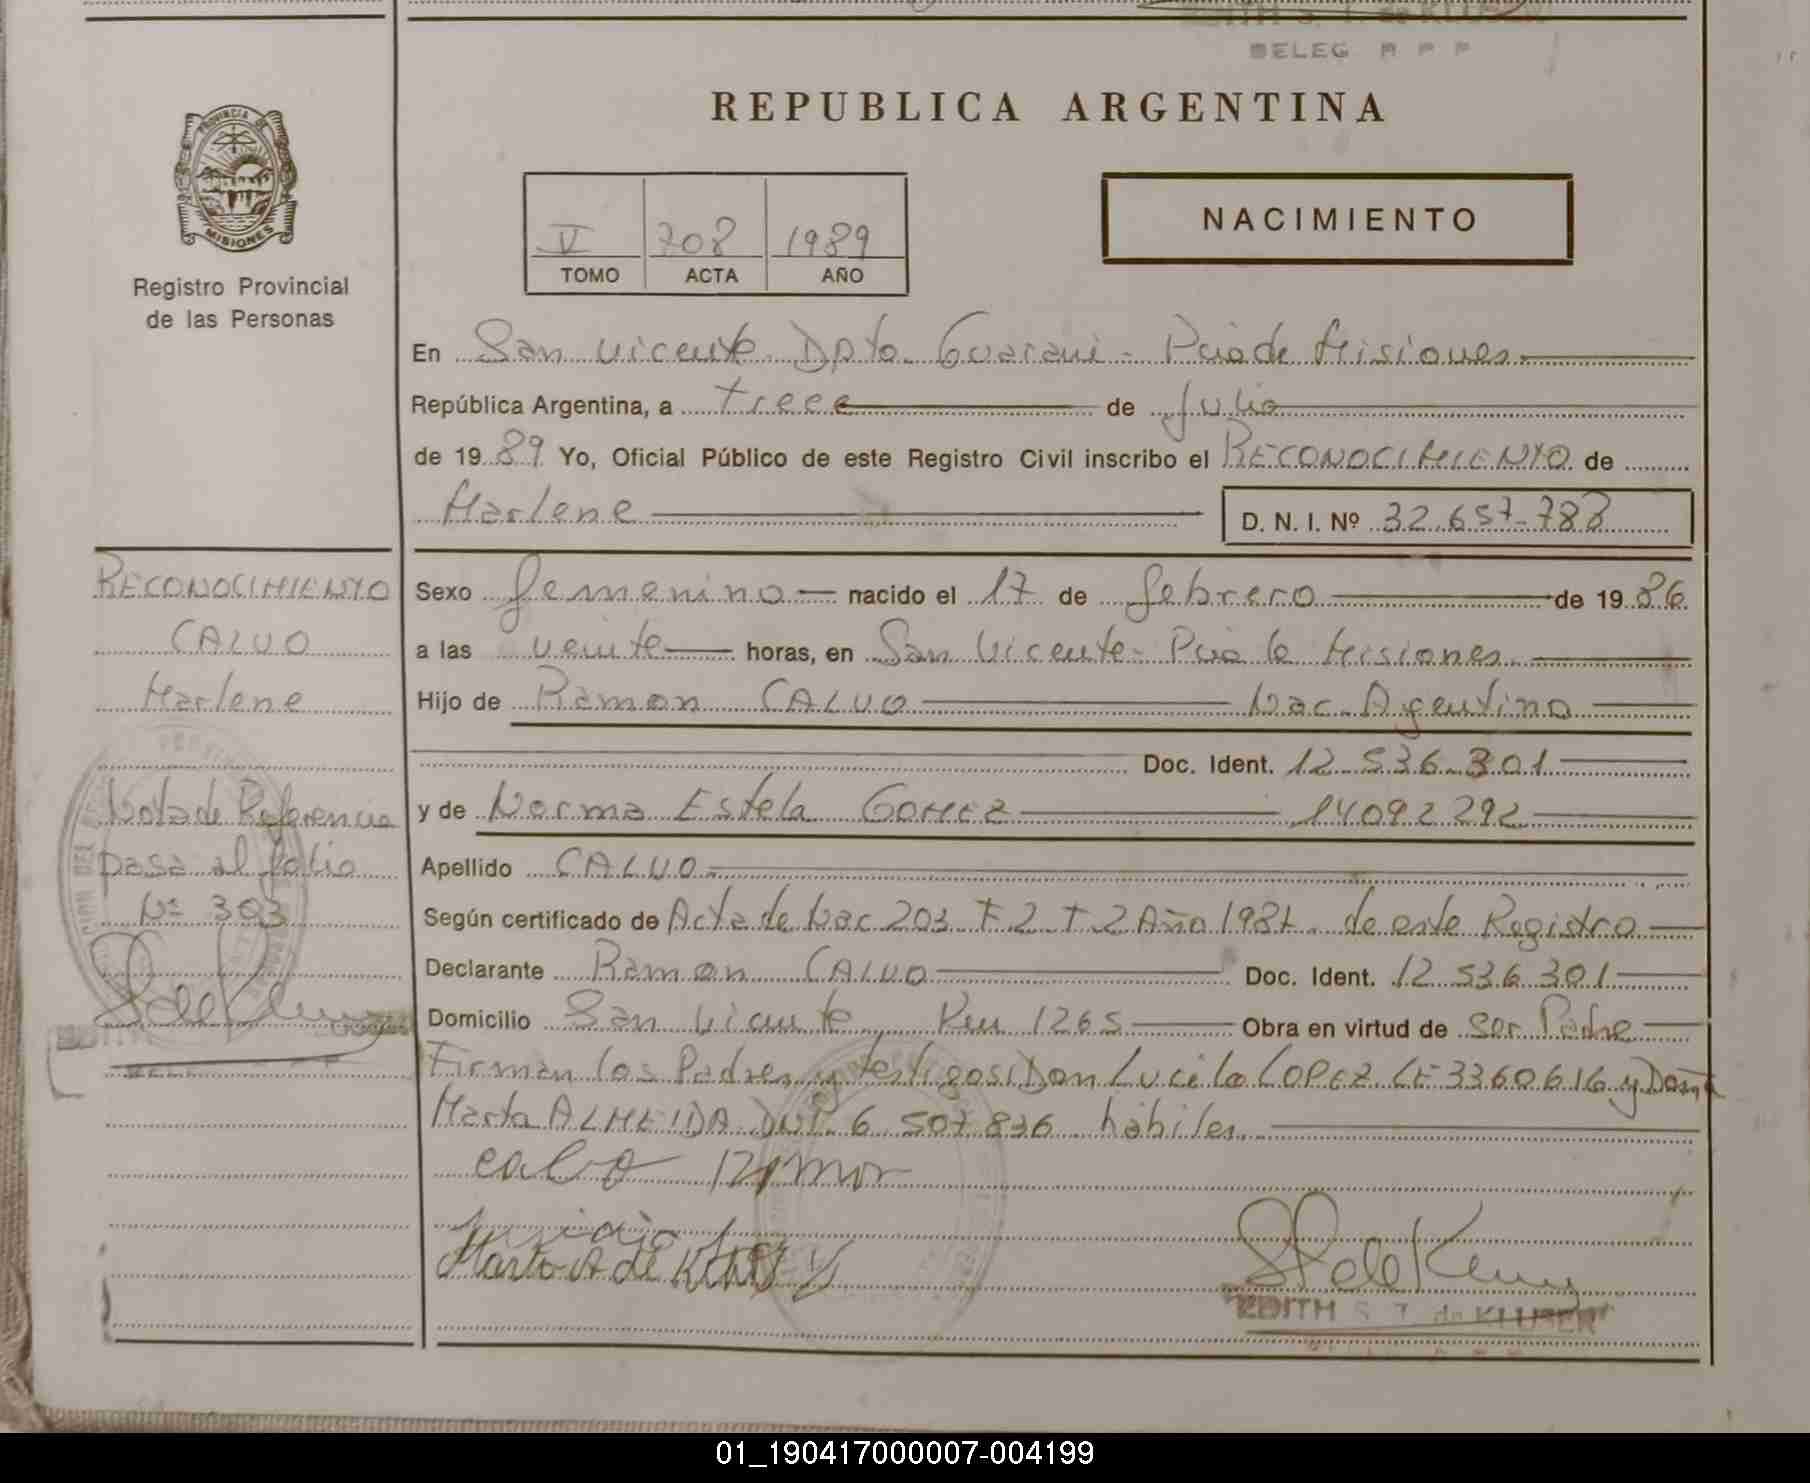 EDITH S. T. de KLUSER
DELEG R P P
REPUBLICA ARGENTINA
PROVINCIA DE
MISIONES
Registro Provincial
de las Personas
V 708 1989
TOMO ACTA AÑO
NACIMIENTO
En San Vicente Dpto. Guarani - Pcia de Misiones
República Argentina, a trece de Julio
de 1989 Yo, Oficial Público de este Registro Civil inscribo el RECONOCIMIENTO de
Marlene D. N. I. Nº 32.657.783
RECONOCIMIENTO
CALVO
Marlene
Nota de Referencia
pasa al folio
Nº 303
Sexo femenino nacido el 17 de febrero de 1986
a las veinte horas, en San Vicente - Pcia de Misiones
Hijo de Ramon CALVO Nac. Argentino
Doc. Ident. 12.536.301
y de Norma Estela GOMEZ 14092292
Apellido CALVO
Según certificado de Acta de Nac 203 F 2 T 2 Año 1987 de este Registro
Declarante Ramon CALVO Doc. Ident. 12.536.301
Domicilio San Vicente Km 1265 Obra en virtud de ser Padre
Firman los Padres y testigos: Don Lucilo LOPEZ LE 3360616 y Doña
Marta ALMEIDA DNI. 6.507.836 hábiles
calvo ramon
EDITH S. T. de KLUSER
01_190417000007-004199